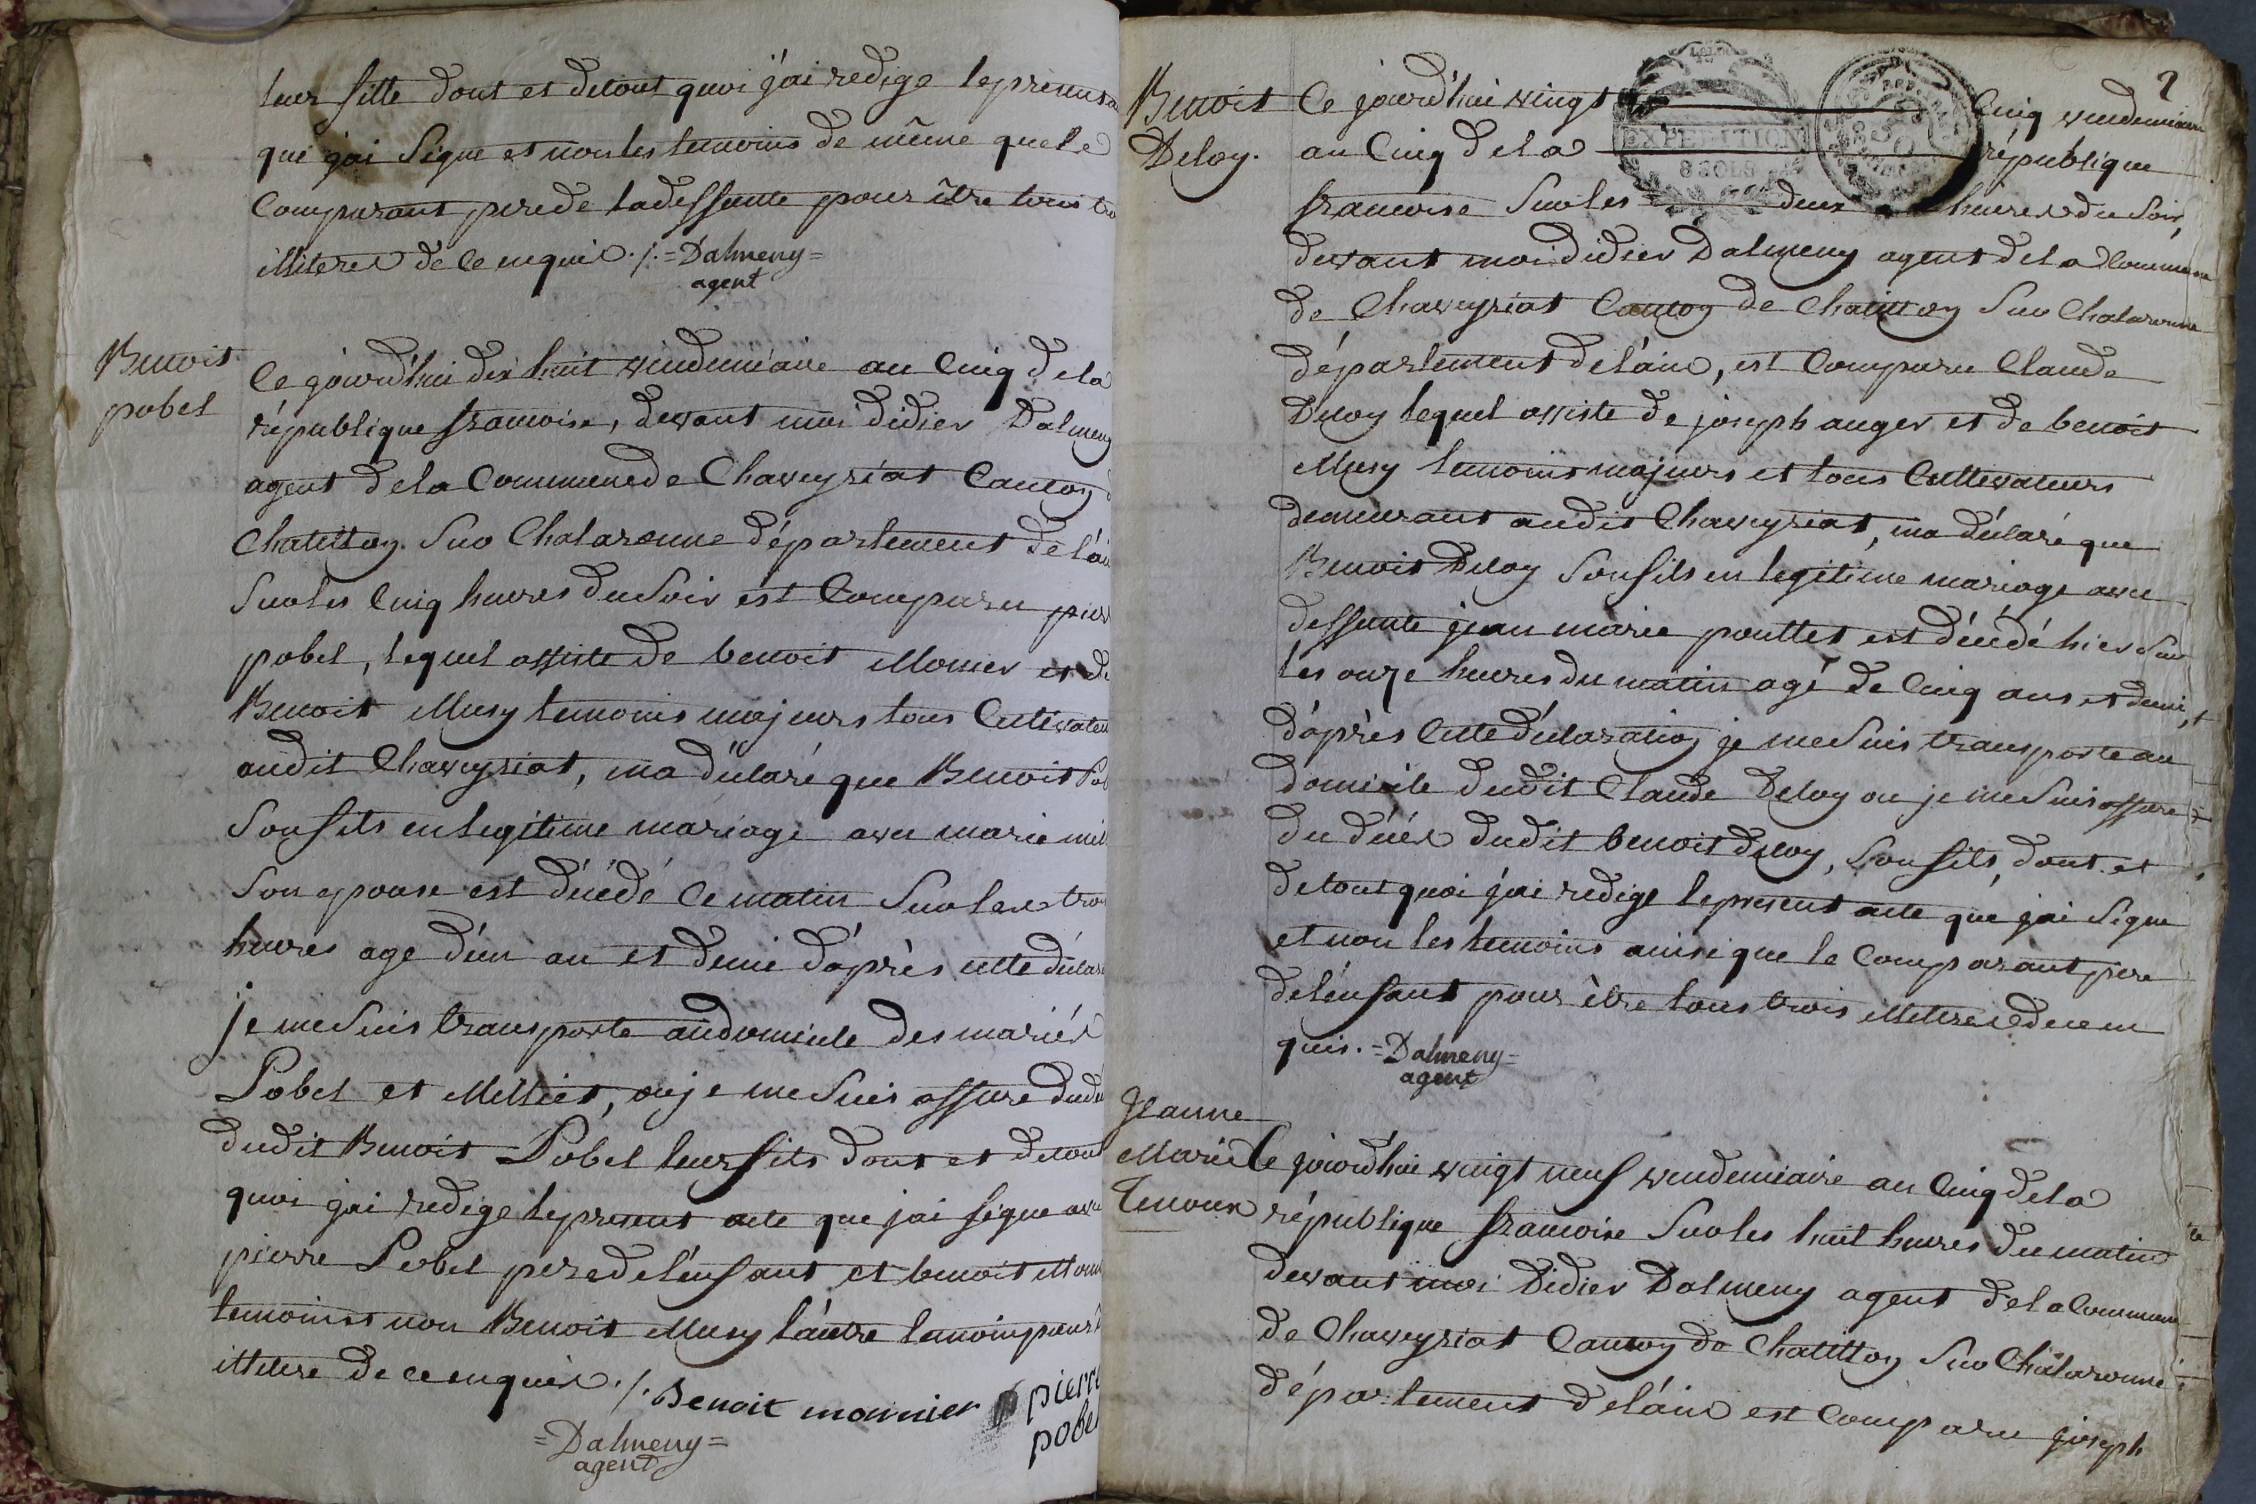 leur fille dont et detout quoi j'ai redige lepresent
que j'ai Signe et non les temoins de même que le
Comparant pere de ladeffunte pour être tous
illiteres de ce enquis ./. = Dalmeny =
agent
Benoit
pobel
Ce jourd'hui dix huit vendemiaire an Cinq dela
république francoise, devant moi didier Dalmeny
agent dela Commune de Chaveyriat Canton
Chatillon Sur Chalaronne département de l'ain
Sur les Cinq heures du Soir est Comparu pierre
pobel, lequel assiste de benoit Monier et de
Benoit Musy temoins majeurs tous Cultivateurs
audit Chaveyriat, ma déclaré que Benoit Pobel
Son fils en legitime mariage avec marie
Son epouse est décédé Ce matin Sur les trois
heures age d'un an et demi d'après cette
je me Suis transporte audomicile des mariés
Pobel et Millier, ou je me Suis assure du
dudit Benoit Pobel leur fils dont et detout
quoi j'ai redige lepresent acte que j'ai signe avec
pierre Pobel pere de l'enfant et benoit
temoins et non Benoit Musy l'autre temoin pour
illitere de ce enquis ./. Benoit monnier pierre
pobel
= Dalmeny =
agent
2
Benoit
Deloy.
EXPEDITION
8 SOLS
Ce jourd'hui vingt Cinq vendemiaire
an Cinq dela république
francoise Sur les deux heures du Soir,
devant moi didier Dalmeny agent dela Commune
de Chaveyriat Canton de Chatillon Sur Chalaronne
département de l'ain, est Comparu Claude
Deloy lequel assiste de joseph auger et de benoit
Musy temoins majeurs et tous Cultivateurs
demeurant audit Chaveyriat, ma déclaré que
Benoit Deloy Son fils en legitime mariage avec
deffunte jean marie pouttet est décédé hier Sur
les onze heures du matin agé de Cinq ans et demi,
d'après Cette déclaration je me Suis transporte au
domicile dudit Claude Deloy ou je me Suis assure
du décès dudit benoit deloy, Son fils, dont et
detout quoi j'ai redige lepresent acte que j'ai Signe
et non les temoins ainsi que le Comparant pere
de l'enfant pour être tous trois illiteres de ce en
quis. = Dalmeny =
agent
Jeanne
Marie
Tenoux
Ce jourd'hui vingt neuf vendemiaire an Cinq dela
république francoise Sur les huit heures du matin
devant moi Didier Dalmeny agent dela Commune
de Chaveyriat Canton de Chatillon Sur Chalaronne
département de l'ain est Comparu joseph